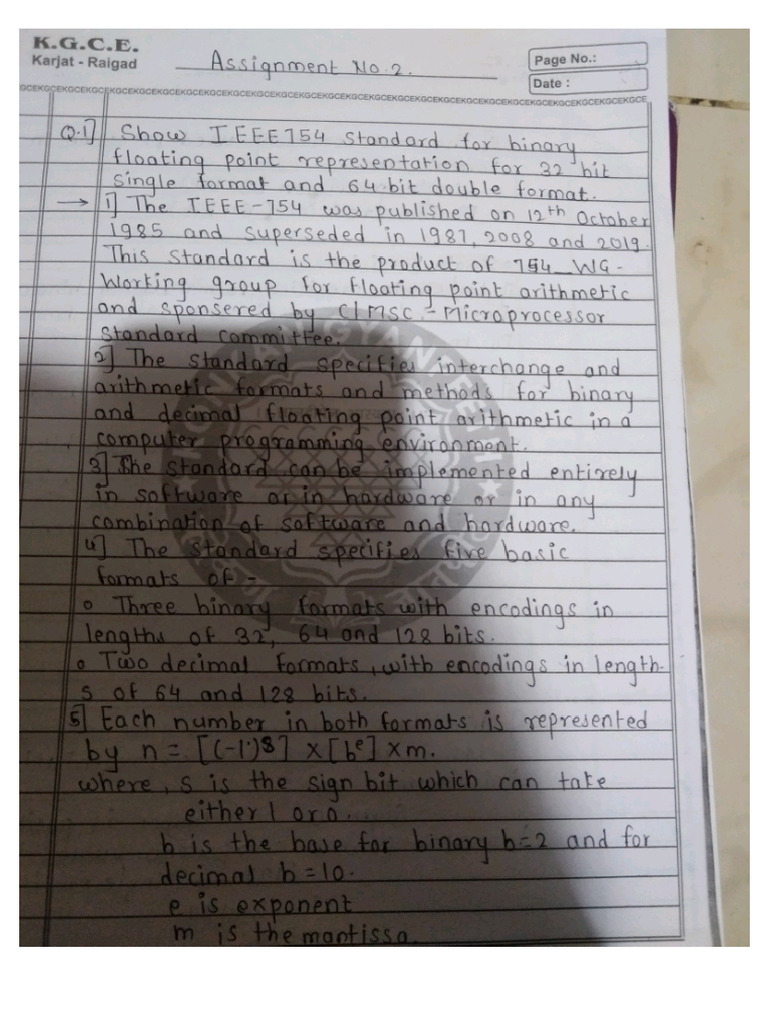 K.G.C.E.
Karjat - Raigad
Assignment No. 2.
Page No.:
Date :
GCEKGCEKGCEKGCEKGCEKGCEKGCEKGCEKGCEKGCEKGCEKGCEKGCEKGCEKGCEKGCEKGCEKGCEKGCEKGCEKGCEKGCE
Q.1] Show IEEE754 standard for binary
floating point representation for 32 bit
single format and 64 bit double format.
→ 1] The IEEE-754 was published on 12th October
1985 and superseded in 1987, 2008 and 2019.
This standard is the product of 754_WG-
Working group for floating point arithmetic
and sponsered by C/MSC - Microprocessor
standard committee.
2] The standard specifies interchange and
arithmetic formats and methods for binary
and decimal floating point arithmetic in a
computer programming environment.
3] The standard can be implemented entirely
in software or in hardware or in any
combination of software and hardware.
4] The standard specifies five basic
formats of -
o Three binary formats with encodings in
lengths of 32, 64 and 128 bits.
o Two decimal formats, with encodings in length-
s of 64 and 128 bits.
5] Each number in both formats is represented
by n = [(-1)s] x [be] x m.
where, s is the sign bit which can take
either 1 or 0.
b is the base for binary b=2 and for
decimal b=10.
e is exponent
m is the mantissa.